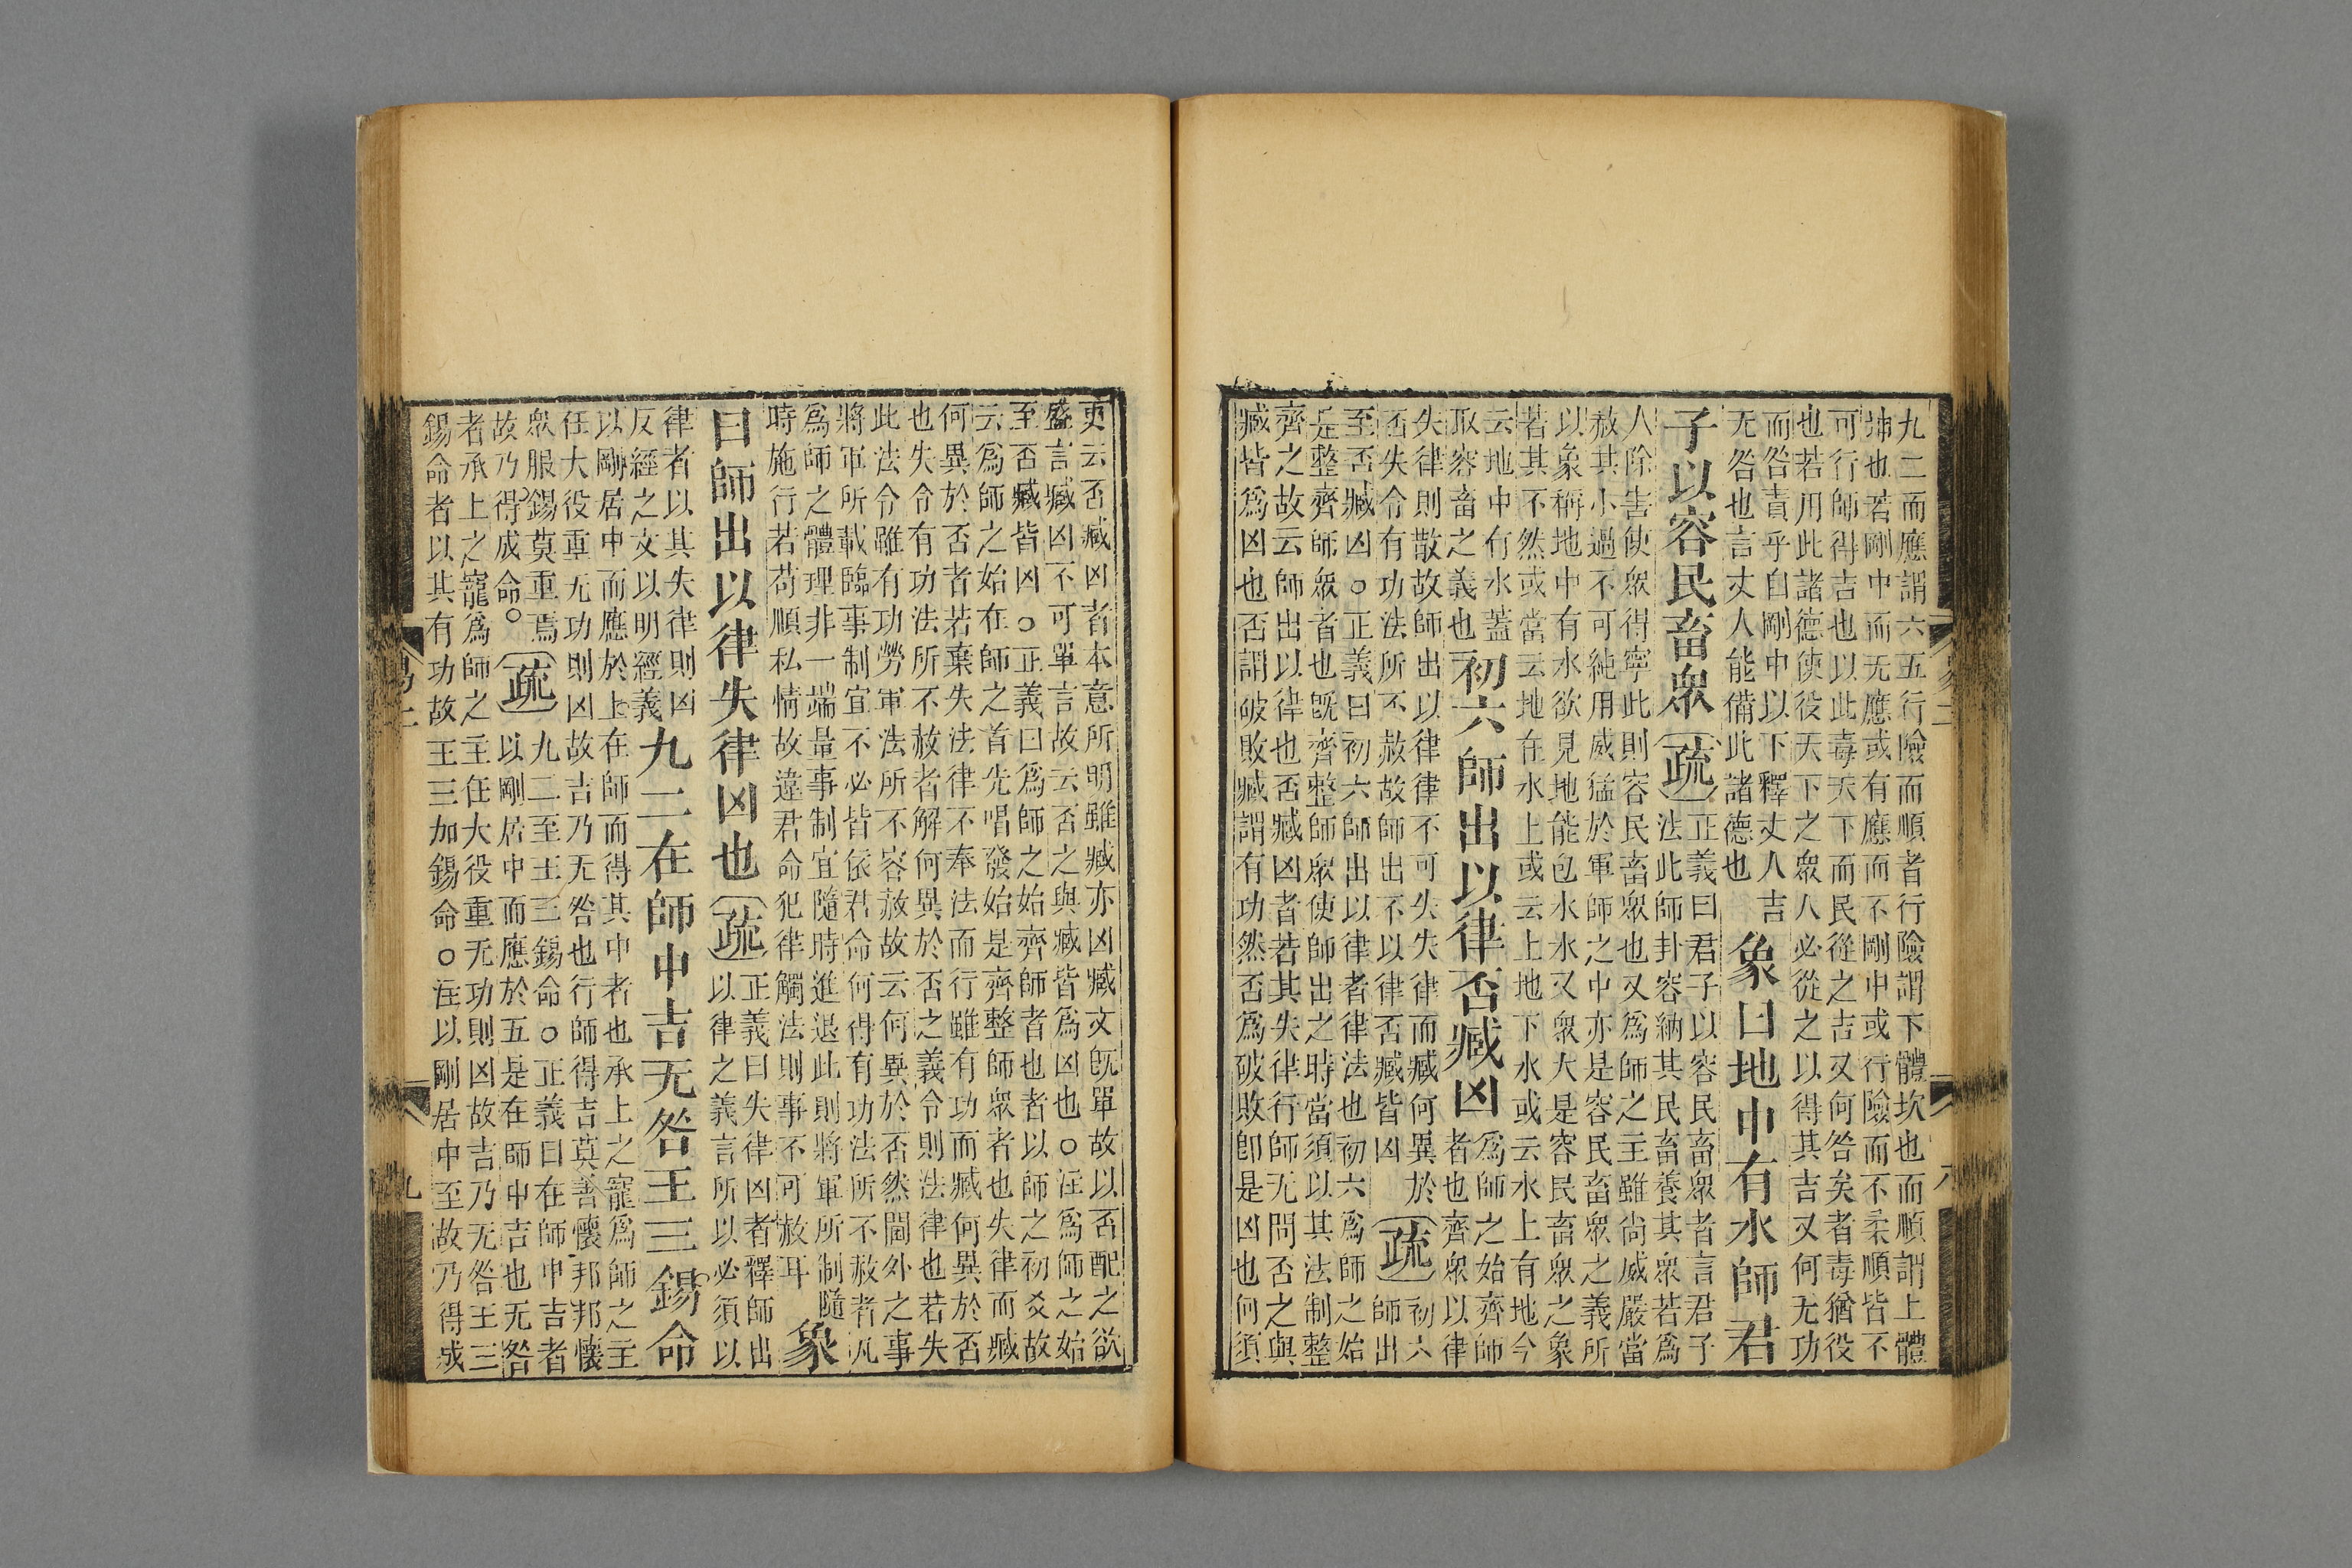 九二而應謂六五行險而順者行險謂下體坎也而順謂上體
坤也若剛中而无應或有應而不剛中或行險而不柔順皆不
可行師得吉也以此毒天下而民從之吉又何咎矣者毒猶役
也若用此諸德使役天下之衆人必從之以得其吉又何无功
而咎責乎自剛中以下釋丈人吉
无咎也言丈人能備此諸德也
象曰地中有水師君
子以容民畜衆
疏
正義曰君子以容民畜衆者言君子
法此師卦容納其民畜養其衆若爲
人除害使衆得寧此則容民畜衆也又爲師之主雖尚威嚴當
赦其小過不可純用威猛於軍師之中亦是容民畜衆之義所
以象稱地中有水欲見地能包水水又衆大是容民畜衆之象
若其不然或當云地在水上或云上地下水或云水上有地今
云地中有水蓋
取容畜之義也
初六師出以律否臧凶
爲師之始齊師
者也齊衆以律
失律則散故師出以律律不可失失律而臧何異於
否失令有功法所不赦故師出不以律否臧皆凶
疏
初六
師出
至否臧凶○正義曰初六師出以律者律法也初六爲師之始
是整齊師衆者也旣齊整師衆使師出之時當須以其法制整
齊之故云師出以律也否臧凶者若其失律行師无問否之與
臧皆爲凶也否謂破敗臧謂有功然否爲破敗卽是凶也何須
更云否臧凶者本意所明雖臧亦凶臧文旣單故以否配之欲
盛言臧凶不可單言故云否之與臧皆爲凶也○注爲師之始
至否臧皆凶○正義曰爲師之始齊師者也者以師之初爻故
云爲師之始在師之首先唱發始是齊整師衆者也失律而臧
何異於否者若棄失法律不奉法而行雖有功而臧何異於否
也失令有功法所不赦者解何異於否之義令則法律也若失
此法令雖有功勞軍法所不容赦故云何異於否然閫外之事
將軍所載臨事制宜不必皆依君命何得有功法所不赦者凡
爲師之體理非一端量事制宜隨時進退此則將軍所制隨
時施行若苟順私情故違君命犯律觸法則事不可赦耳
象
曰師出以律失律凶也
疏
正義曰失律凶者釋師出
以律之義言所以必須以
律者以其失律則凶
反經之文以明經義
九二在師中吉无咎王三錫命
以剛居中而應於上在師而得其中者也承上之寵爲師之主
任大役重无功則凶故吉乃无咎也行師得吉莫善懷邦邦懷
衆服錫莫重焉
故乃得成命○
疏
九二至王三錫命○正義曰在師中吉者
以剛居中而應於五是在師中吉也无咎
者承上之寵爲師之主任大役重无功則凶故吉乃无咎王三
錫命者以其有功故王三加錫命○注以剛居中至故乃得成